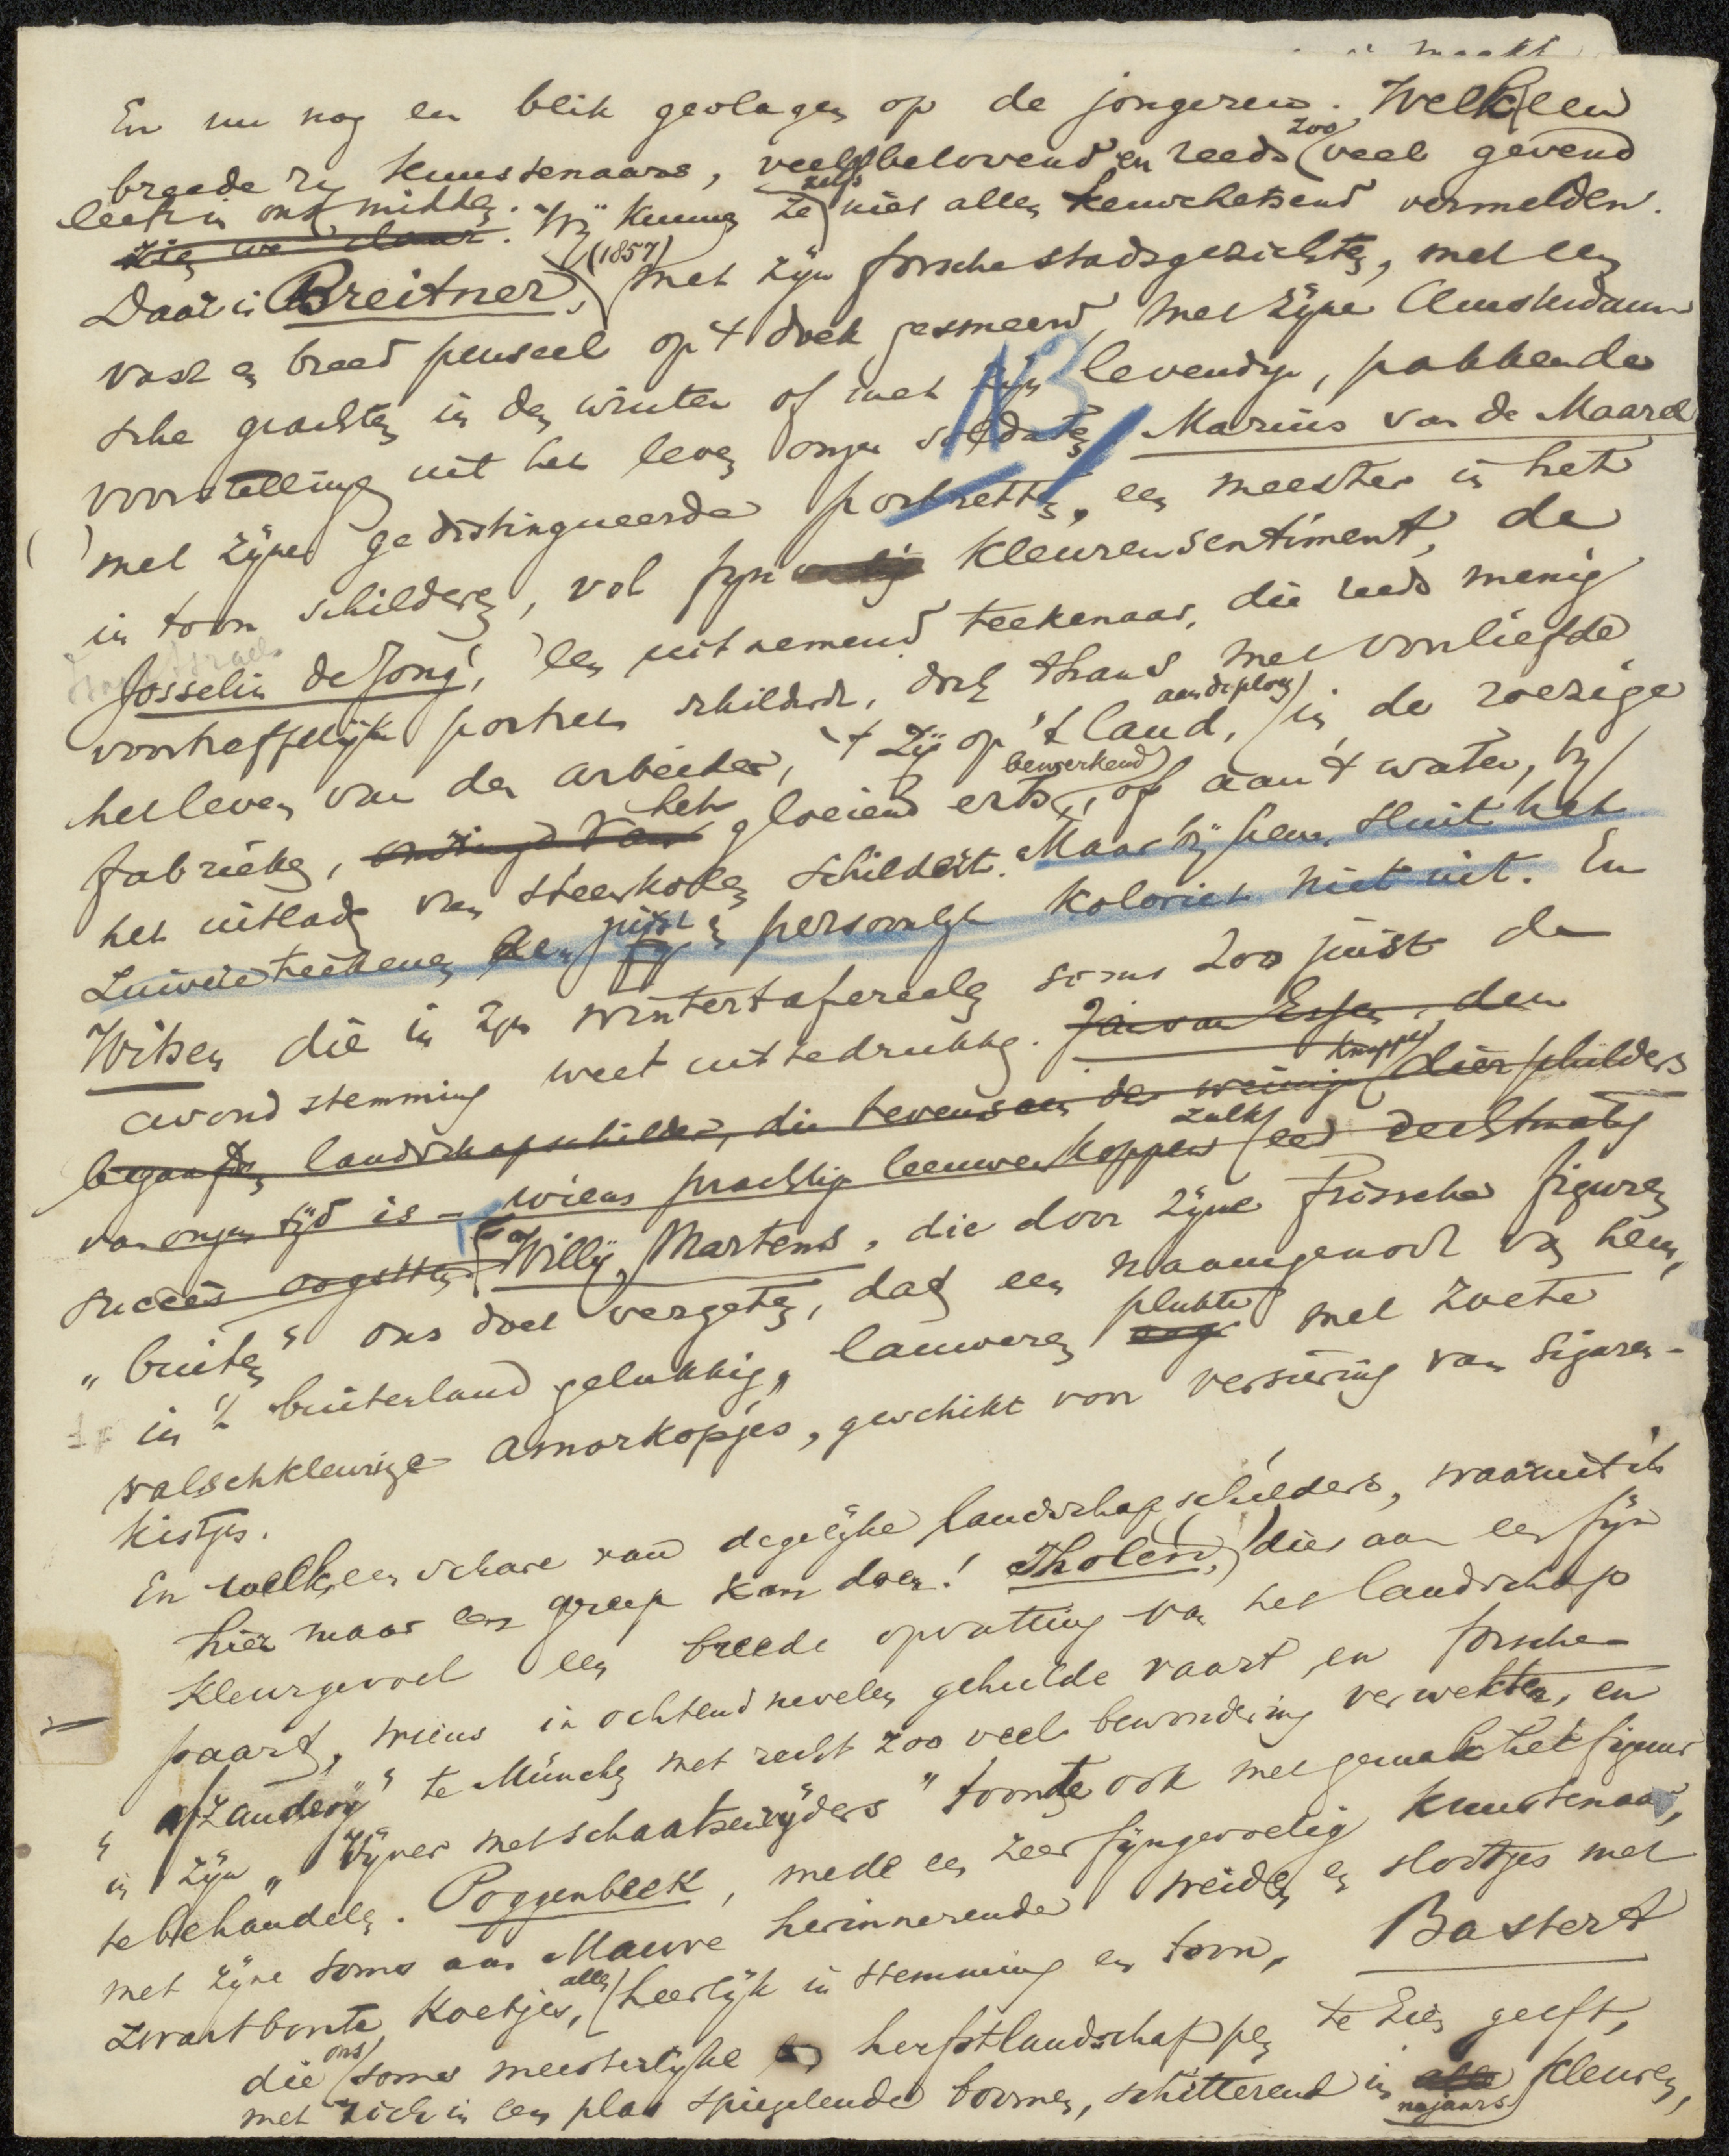 maakt
En nu nog een blik geslagen op de jongeren. Welk een
breede rij kunstenaars, veelbelovend en reeds zoo veel gevend
leeft in ons midden. Wij kunnen ze zelfs niet allen kenschetsend vermelden.
zien we daar.
Daar is Breitner (1857) met zijn forsche stadsgezichten, met een
vast en breed penseel op 't doek gesmeerd, met zijne Amsterdam
sche grachten in den winter of met zijn levendige, pakkende
voorstelling uit het leven onzer soldaten, Marius van de Maarel
met zijne gedistingueerde portretten, een meester in het
in toon schilderen, vol fijn kleurensentiment, de
Josselin de Jong, een uitnemend teekenaar, die reeds menig
voortreffelijk portret schilderde, doch thans met voorliefde
het leven van den arbeider, 't zij op 't land, aan de ploeg, in de roezige
fabrieken, het gloeiend erts bewerkend, of aan 't water, bij
het uitladen van steenkolen schildert. Maar bij hem sluit het
zuivere teekenen een juist en persoonlijk koloriet niet uit. En
Witsen die in zijn wintertafereelen soms zoo juist de
avondstemming weet uit te drukken. Jan van Essen, den
begaafden landschapschilder, die tevens een der weinige knappe dierschilders
van onzen tijd is – wiens prachtige leeuwenkoppen zulk een rechtmatig
succes oogstten. Willy Martens, die door zijne frissche figuren
"buiten" ons doet vergeten, dat een naamgenoot van hem,
in 't buitenland gelukkig, lauweren plukte met zoete
valschkleurige amorkopjes, geschikt voor versiering van sigaren-
kistjes.
En welk een schare van degelijke landschapschilders, waaruit ik
hier maar een greep kan doen! Tholen, die aan een fijn
kleurgevoel een breede opvatting van het landschap
paart, wiens in ochtendnevelen gehulde vaart en forsche
"afzanderij" te München met recht zoo veel bewondering verwekten, en
in zijn "Vijver met schaatsenrijders" toonde ook met gemak het figuur
te behandelen. Poggenbeek, mede een zeer fijngevoelig kunstenaar,
met zijne soms aan Mauve herinnerende weiden en slootjes met
zwartbonte koetjes, allen heerlijk in stemming en toon, Bastert
die ons soms meesterlijke herfstlandschappen te zien geeft,
met zich in een plas spiegelende boomen, schitterend in najaars kleuren,